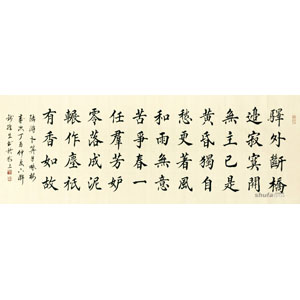 驛外斷橋
邊寂寞開
無主已是
黃昏獨自
愁更著風
和雨無意
苦爭春一
任羣芳妒
零落成泥
輾作塵祇
有香如故
陸游卜算子咏梅
丁酉仲夏